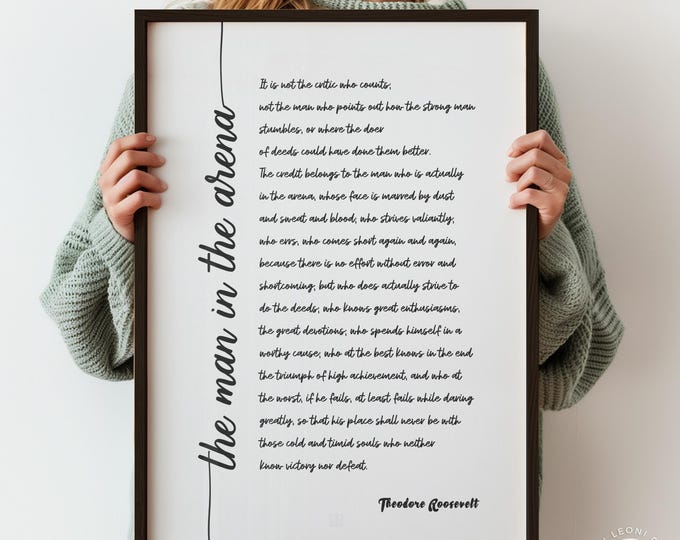 the man in the arena
It is not the critic who counts,
not the man who points out how the strong man
stumbles, or where the doer
of deeds could have done them better.
The credit belongs to the man who is actually
in the arena, whose face is marred by dust
and sweat and blood; who strives valiantly,
who errs, who comes short again and again,
because there is no effort without error and
shortcoming; but who does actually strive to
do the deeds; who knows great enthusiasms,
the great devotions; who spends himself in a
worthy cause; who at the best knows in the end
the triumph of high achievement, and who at
the worst, if he fails, at least fails while daring
greatly, so that his place shall never be with
those cold and timid souls who neither
know victory nor defeat.
Theodore Roosevelt
LEONI